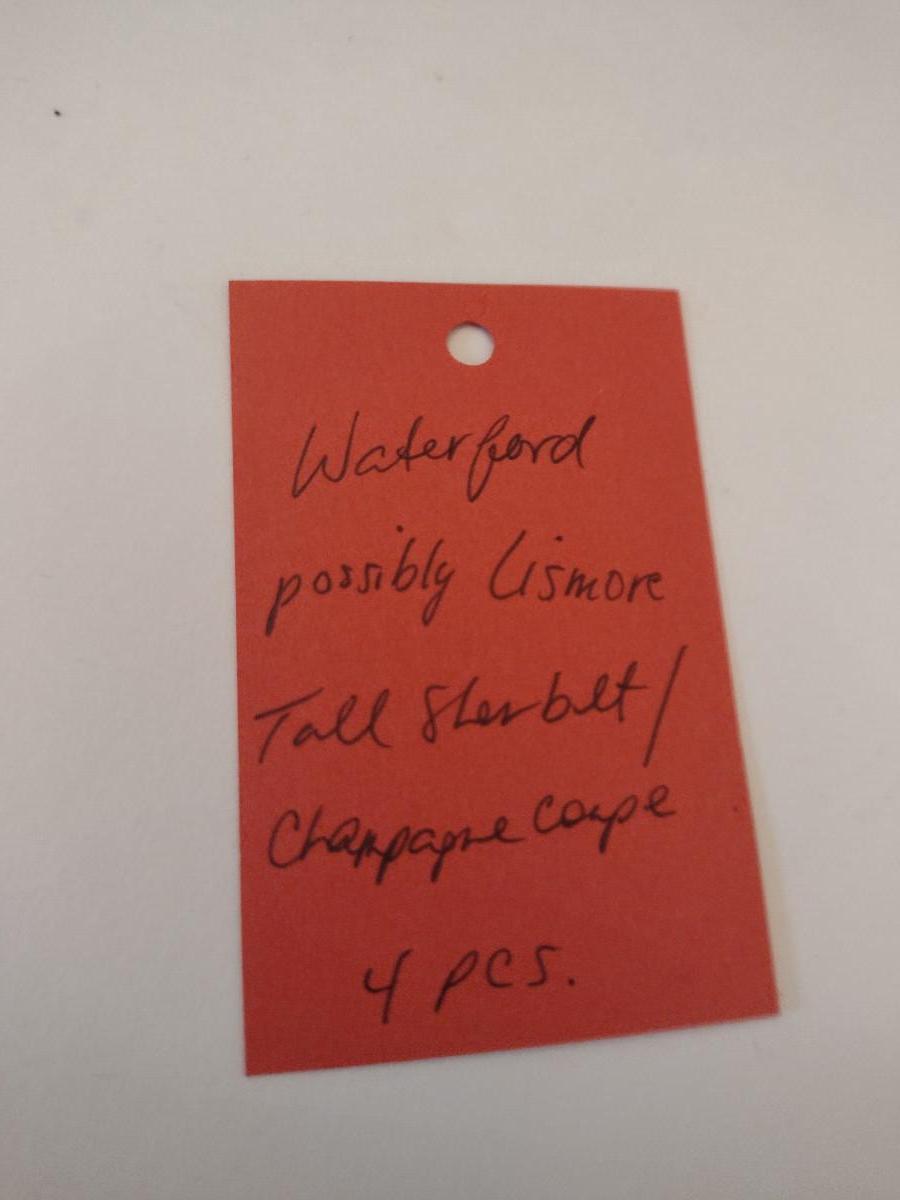 Waterford
possibly Lismore
Tall Sherbet/
Champagne Coupe
4 pcs.